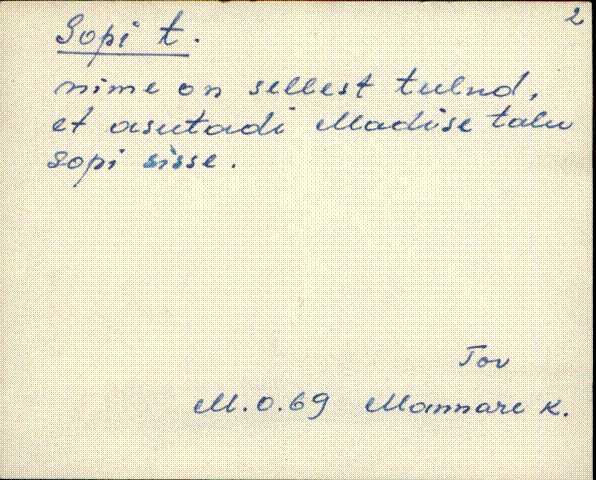 2
Sopi t.
nime on sellest tulnd,
et asutadi Madise talu
sopi sisse.
Tov
M.O.69 Mannare k.